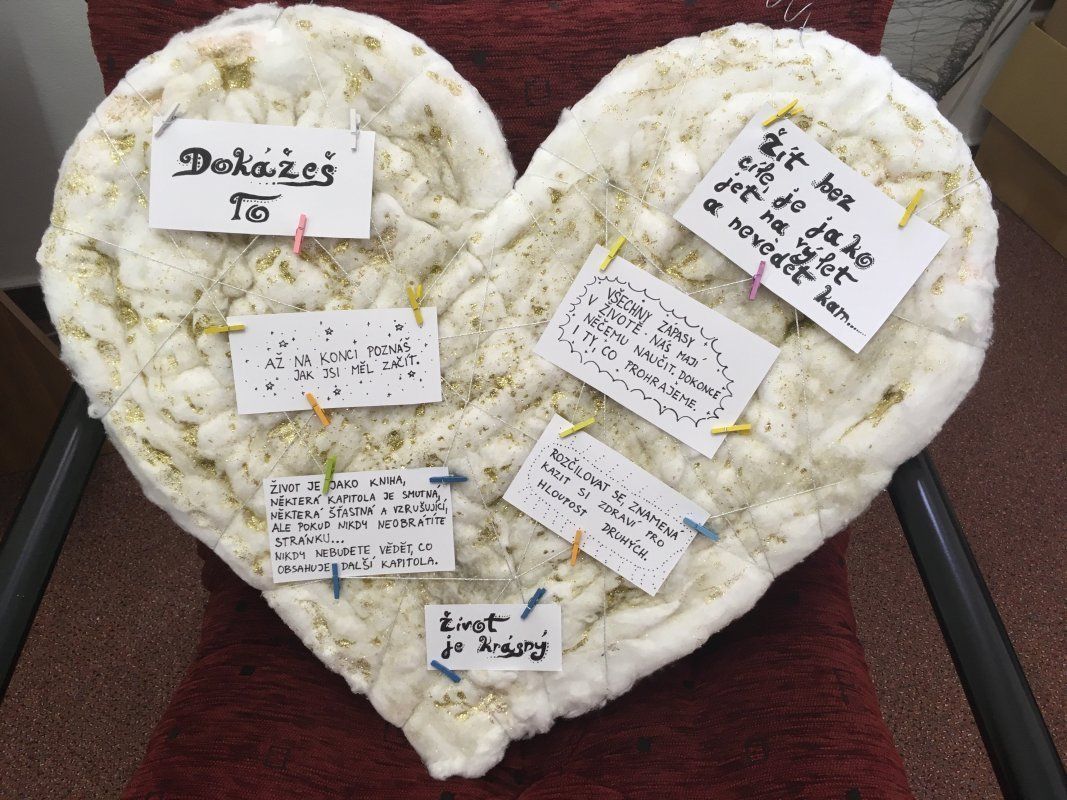 Dokážeš
To
Žít bez
cíle, je jako
jet na výlet
a nevědět kam.....
VŠECHNY ZÁPASY
V ŽIVOTĚ NÁS MAJÍ
NĚČEMU NAUČIT, DOKONCE
I TY, CO PROHRAJEME.
AŽ NA KONCI POZNÁŠ
JAK JSI MĚL ZAČÍT.
ROZČILOVAT SE, ZNAMENÁ
KAZIT SI ZDRAVÍ PRO
HLOUPOST DRUHÝCH.
ŽIVOT JE JAKO KNIHA,
NĚKTERÁ KAPITOLA JE SMUTNÁ,
NĚKTERÁ ŠŤASTNÁ A VZRUŠUJÍCÍ,
ALE POKUD NIKDY NEOBRÁTÍTE
STRÁNKU...
NIKDY NEBUDETE VĚDĚT, CO
OBSAHUJE DALŠÍ KAPITOLA.
Život
je krásný